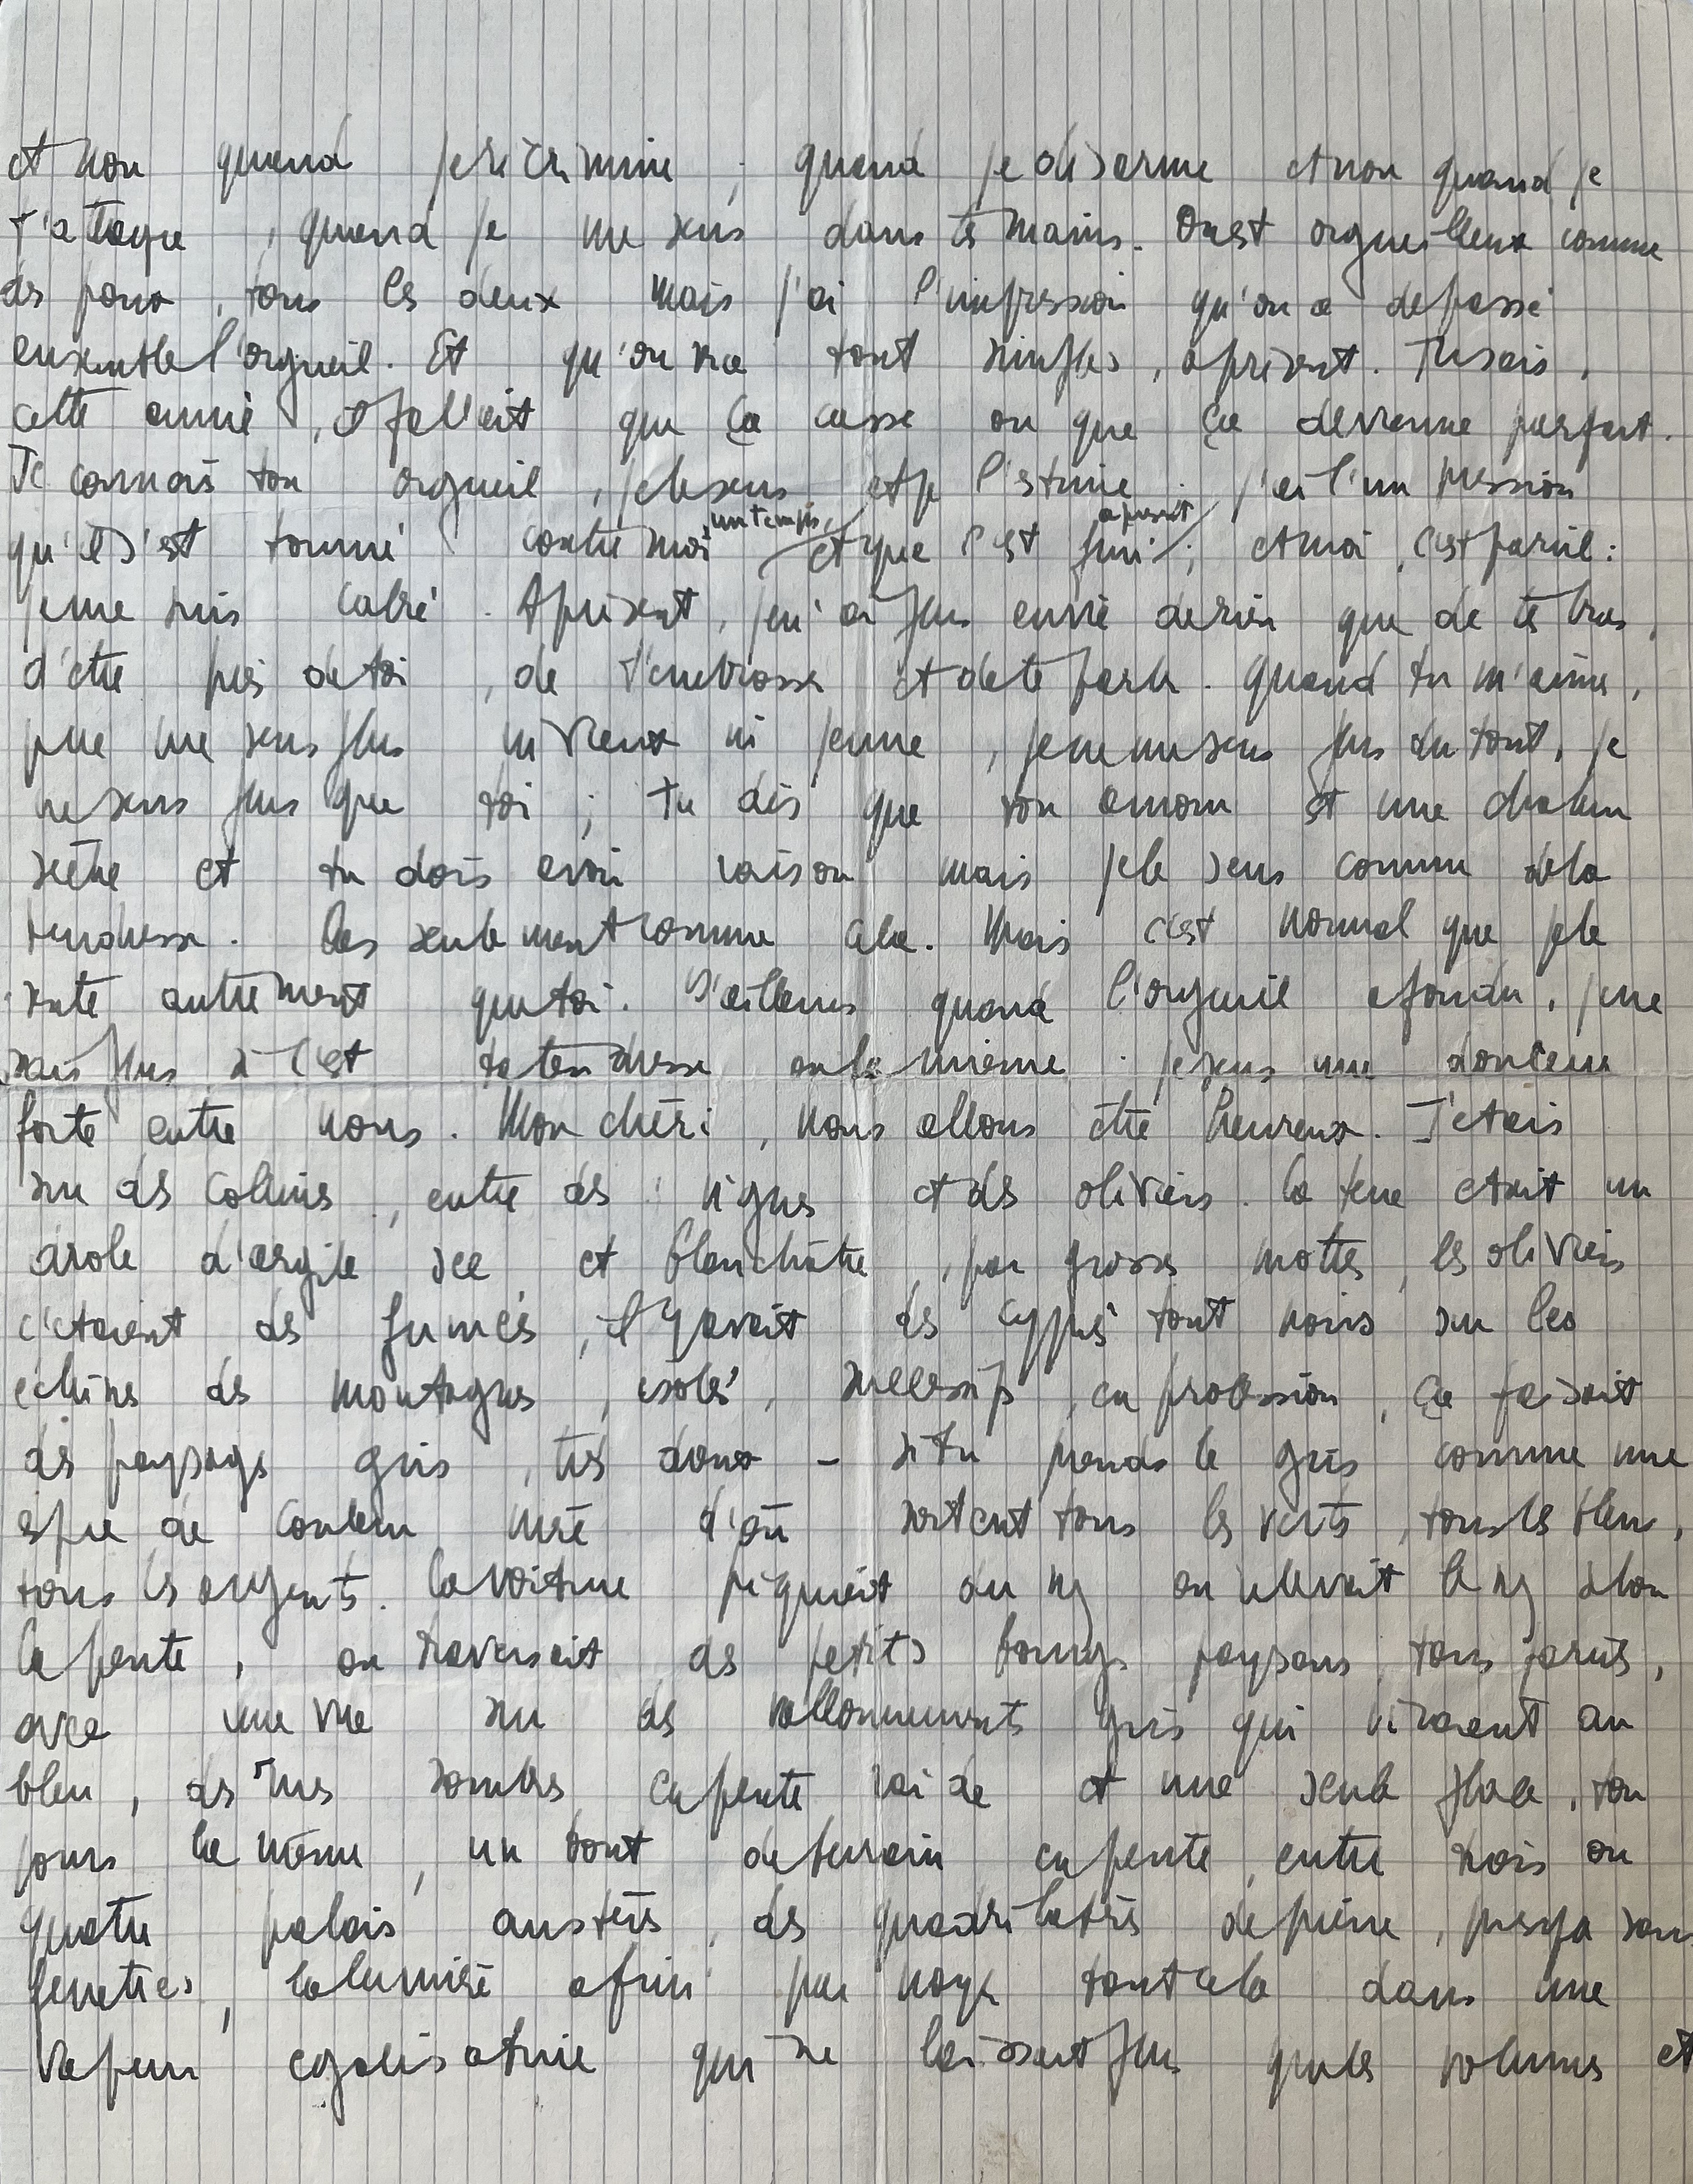 et non quand je récrimine ; quand je désarme et non quand je
t'attaque, quand je me sens dans tes mains. On est orgueilleux comme
des poux, tous les deux mais j'ai l'impression qu'on a dépassé
ensemble l'orgueil. Et qu'on sera tout simples, à présent. Tu sais,
cette année, il fallait que ça casse ou que ça devienne parfait.
Je connais ton orgueil, je le sens et je l'estime ; j'ai l'impression
qu'il s'est tourné contre moi un temps, et que c'est fini à présent ; et moi, c'est pareil :
je me suis cabré. A présent, je n'ai plus envie de rien que de tes bras,
d'être près de toi, de t'embrasser et de te parler. Quand tu m'aimes,
je ne me sens plus ni vieux ni jeune, je ne me sens plus du tout, je
ne sens plus que toi ; tu dis que ton amour est une chaleur
sèche et tu dois avoir raison mais je le sens comme de la
tendresse. Pas seulement comme cela. Mais c'est normal que je le
sente autrement que toi. D'ailleurs quand l'orgueil a fondu, je ne
sais plus si c'est ta tendresse ou la mienne : je sens une douceur
forte entre nous. Mon chéri, nous allons être heureux. J'étais
sur des collines, entre des vignes et des oliviers. La terre était un
drôle d'argile sec et blanchâtre, par grosses mottes, les oliviers
c'étaient des fumées, il y avait des cyprès tout noirs sur les
échines des montagnes, isolés, successifs, en procession, ça faisait
des paysages gris, très doux - si tu prends le gris comme une
espèce de couleur mère d'où sortent tous les verts, tous les bleus,
tous les argents. La voiture piquait du nez ou relevait le nez selon
la pente, on traversait des petits bourgs paysans, tous pareils,
avec une vue sur des vallonnements gris qui viraient au
bleu, des rues sombres en pente raide et une seule place, tou
jours la même, un bout de terrain en pente entre trois ou
quatre palais austères, des quadrilatères de pierre, presque sans
fenêtres, la lumière a fini par noyer tout cela dans une
vapeur égalisatrice qui ne laissait plus que les volumes et